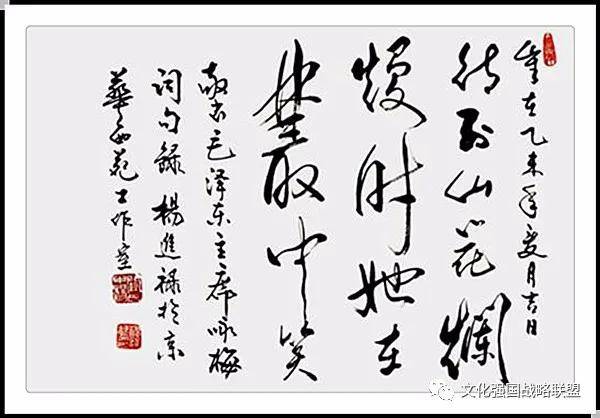 歲在乙未年夏月吉日
待到山花爛
熳时她在
叢中笑
敬书毛泽东主席咏梅
词句錄 楊進祿於京
華西苑工作室
文化强国战略联盟